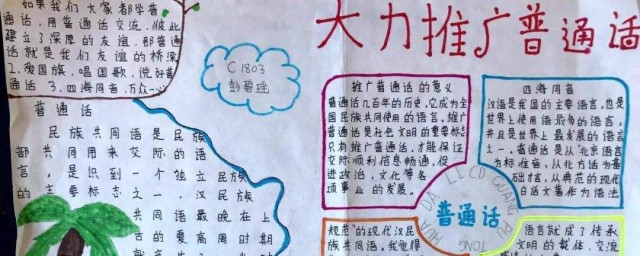 如果我们大家都学普
通话,用普通话交流,彼此
建立了深厚的友谊,那普
通话就是我们友谊的桥梁
2、爱国旗,唱国歌,说好普
通话 3、四海同音,万众一心
C1803
彭碧瑶
大力推广普通话
普通话
民族共同语是民族
部共同用来交际的语
言,是识别一个独立民族
的主要标志之一。汉民族
共同语最晚在上
古的夏商周时期
推广普通话的意义
普通话几百年的历史,它成为全
国民族共同使用的语言。推广
普通话是社会文明的重要标志
只有推广普通话,才能保证
交际顺利信息畅通,促
进政治,文化等各
项事业的发展。
四海同音
汉语是我国的主要语言,也是
世界上使用语历多的语言,
并且是世界上最发展的语言
之一,普通话是以北京语音
为标准音,从北方话为基
础语,从典范的现代
白话文著作为语法
DA LI TUI GUANG PU TONG HUA
普通话
规范"的现代汉民
族共同语。我觉得
语言就成了传承
文明的载体,交流